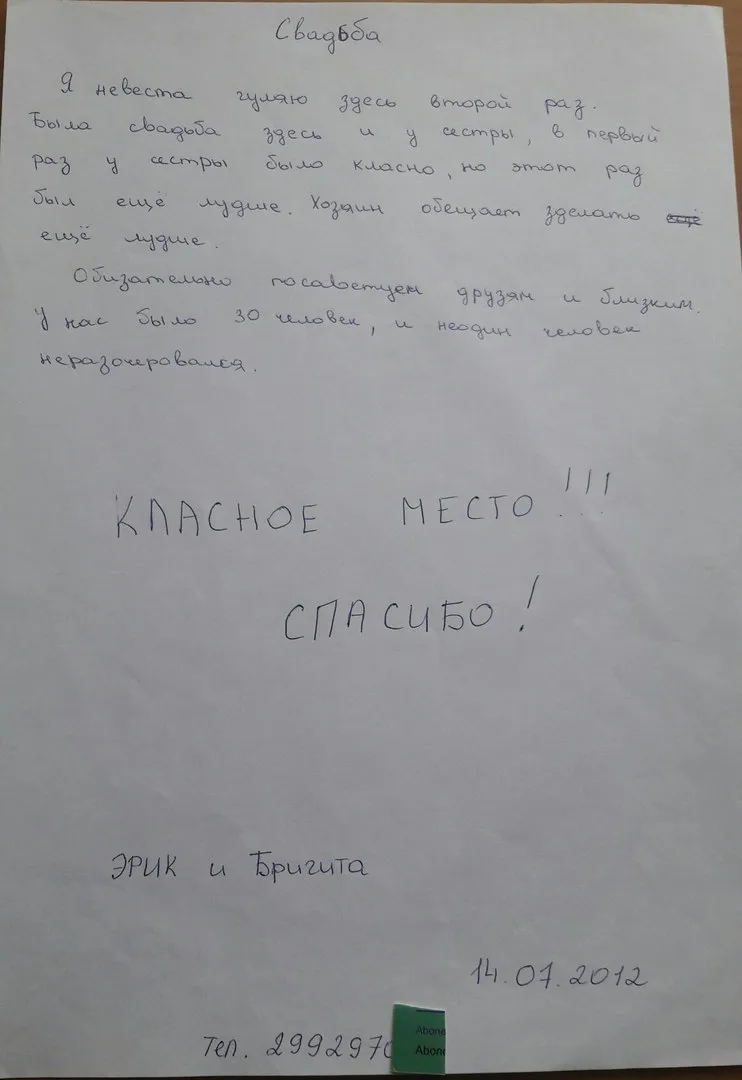 Свадьба
Я невеста гуляю здесь второй раз.
Была свадьба здесь и у сестры, в первый
раз у сестры было класно, но этот раз
был ещё лудше. Хозяин обещает зделать ещё
ещё лудше.
Обизательно посаветуем друзям и близким.
У нас было 30 человек, и неодин человек
неразочеровался.
КЛАСНОЕ МЕСТО!!!
СПАСИБО!
ЭРИК и Бригита
14.07.2012
Тел. 2992970
Abone
Abone